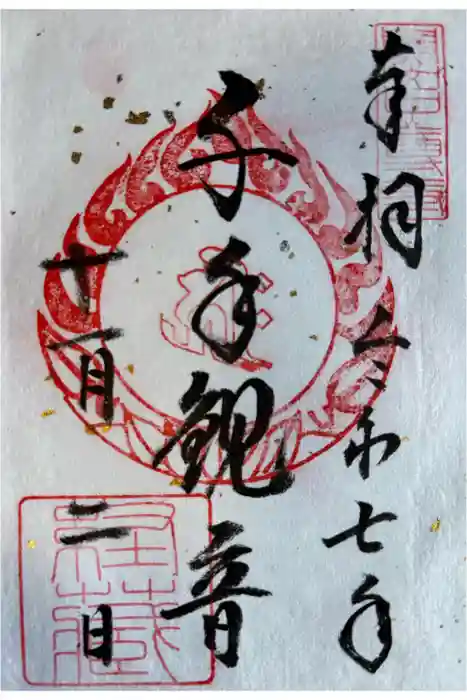 奉拝 令和七年
千手観音
十一月二日
経藏